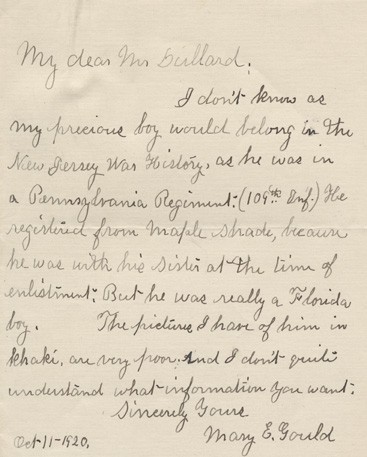 My dear Mr Dullard;
I don't know as
my precious boy would belong in the
New Jersey War History, as he was in
a Pennsylvania Regiment. (109th Inf.) He
registered from Maple Shade, because
he was with his sister at the time of
enlistment. But he was really a Florida
boy. The pictures I have of him in
khaki, are very poor. And I don't quite
understand what information you want.
Sincerely Yours
Mary E. Gould
Oct-11-1920,